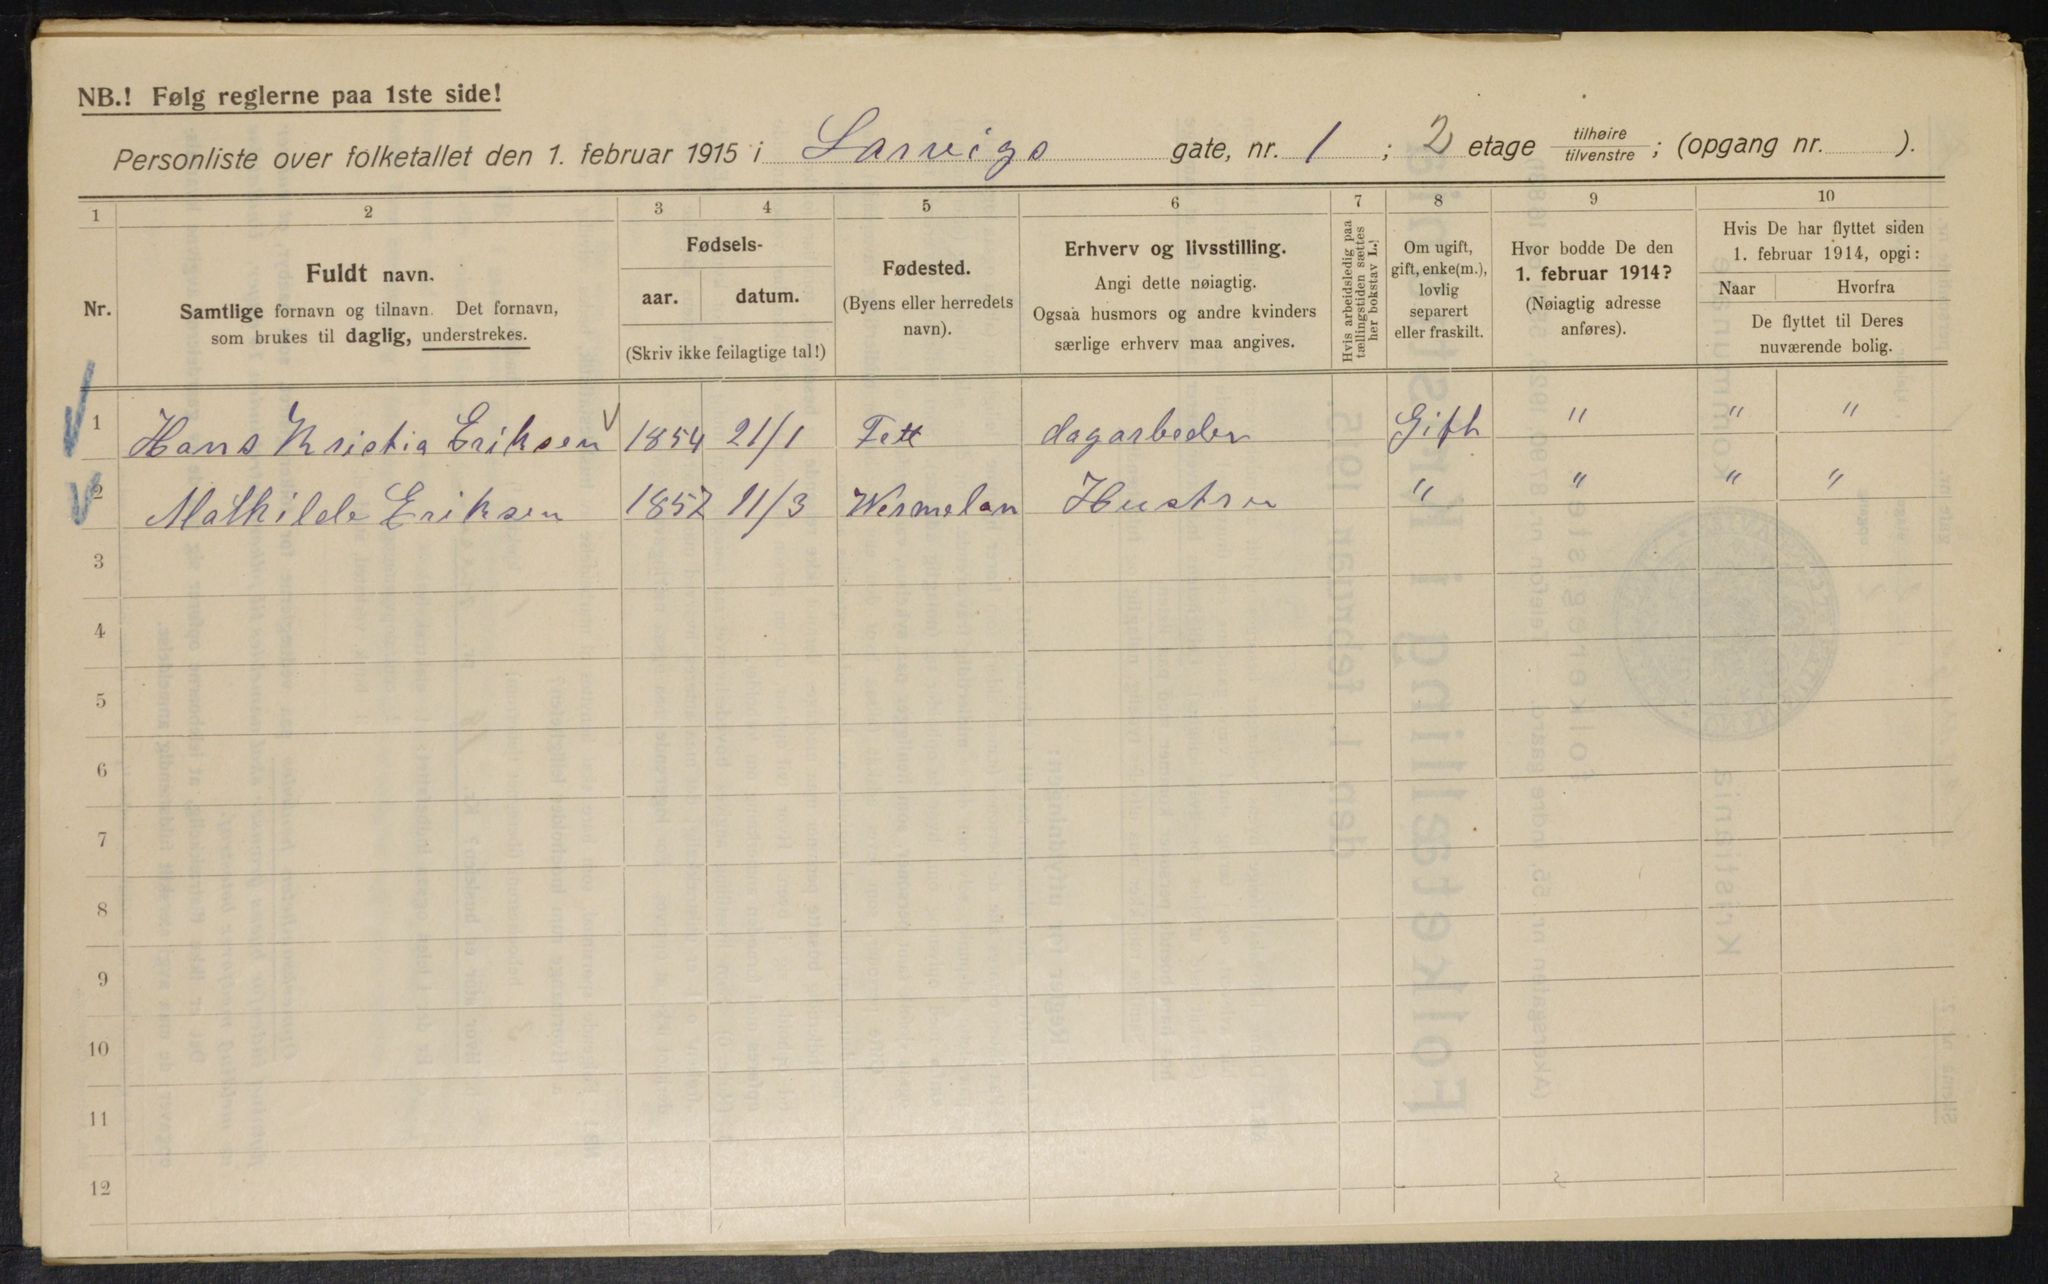 NB.! Følg reglerne paa 1ste side!
Personliste over folketallet den 1. februar 1915 i Larvigs gate, nr. 1 ; 2 etage tilhøire tilvenstre ; (opgang nr. ).
1 2 3 4 5 6 7 8 9 10
Nr.
Fuldt navn.
Samtlige fornavn og tilnavn. Det fornavn,
som brukes til daglig, understrekes.
Fødsels-
aar. datum.
(Skriv ikke feilagtige tal!)
Fødested.
(Byens eller herredets
navn).
Erhverv og livsstilling.
Angi dette nøiagtig.
Ogsaa husmors og andre kvinders
særlige erhverv maa angives.
Hvis arbeidsledig paa
tællingstiden sættes
her bokstav L.!
Om ugift,
gift, enke(m.),
lovlig
separert
eller fraskilt.
Hvor bodde De den
1. februar 1914?
(Nøiagtig adresse
anføres).
Hvis De har flyttet siden
1. februar 1914, opgi:
Naar Hvorfra
De flyttet til Deres
nuværende bolig.
1 Hans Kristia Eriksen 1854 21/1 Fett dagarbeder Gift " " "
2 Mathilde Eriksen 1857 11/3 Wermelan Hustru " " " "
3
4
5
6
7
8
9
10
11
12